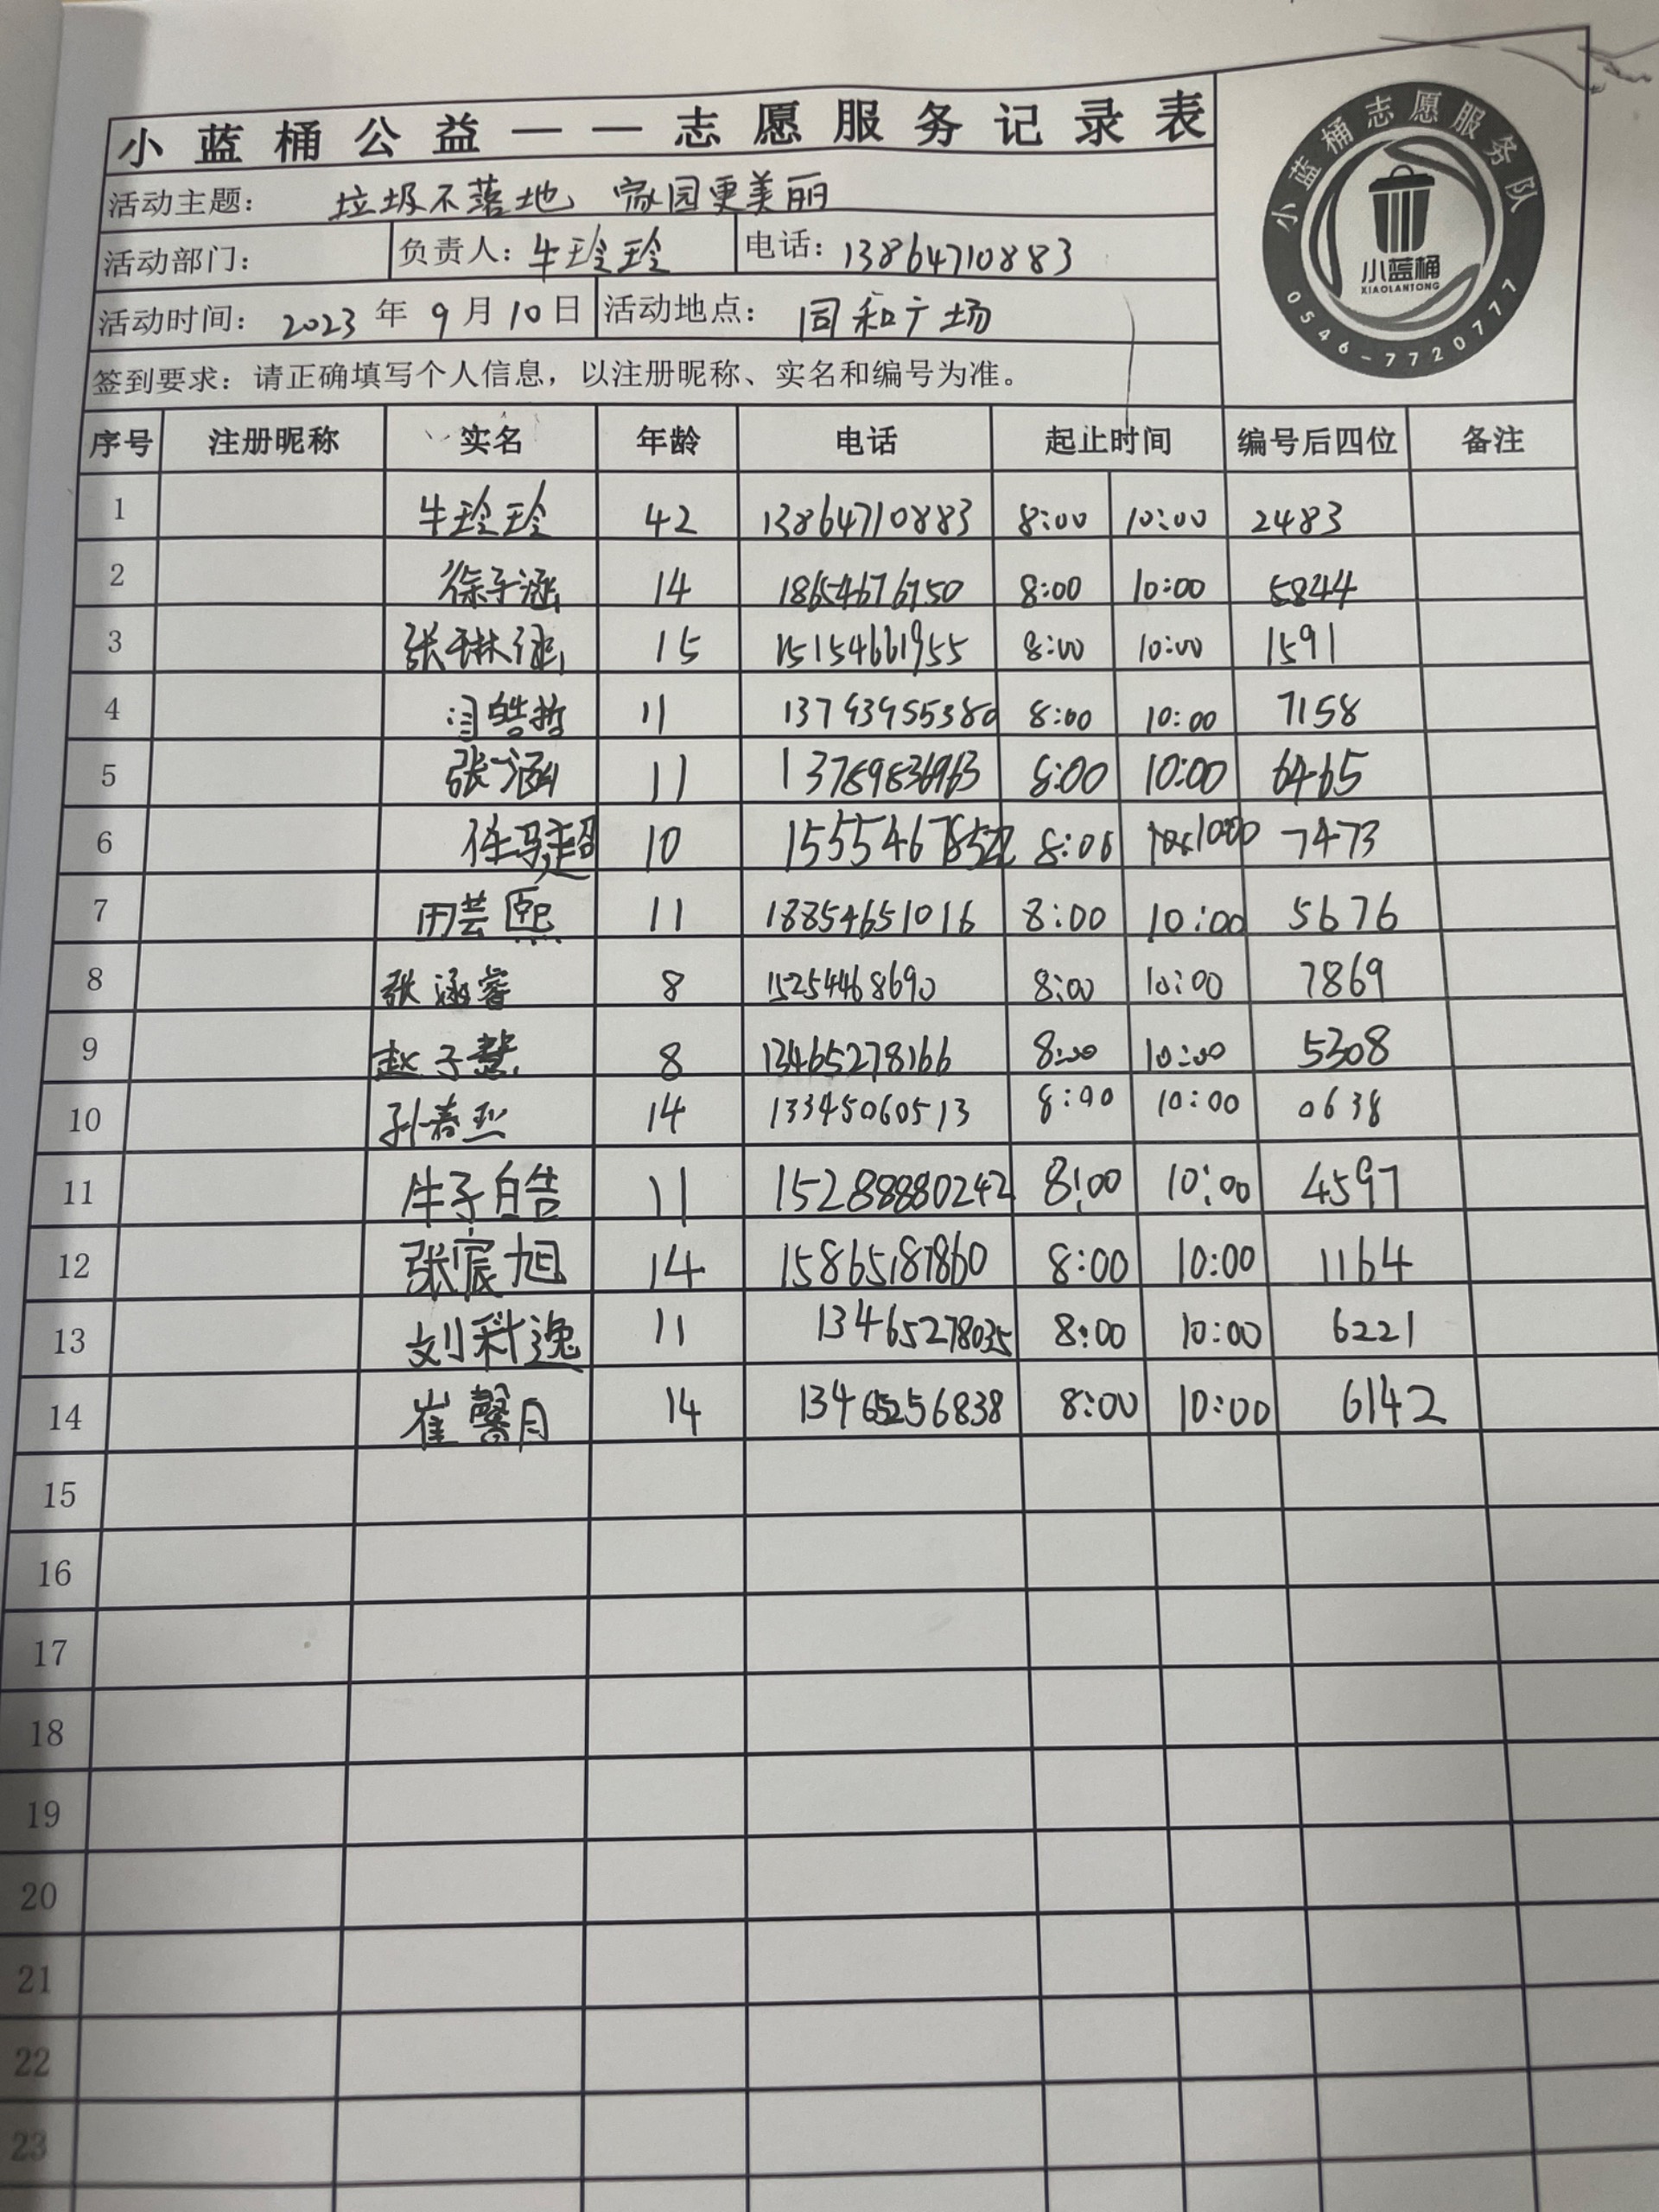 小蓝桶公益——志愿服务记录表
小蓝桶志愿服务队
小蓝桶
XIAOLANTONG
0546-7720777
活动主题： 垃圾不落地 家园更美丽
活动部门： 负责人：牛玲玲 电话：13864710883
活动时间：2023年9月10日 活动地点：同和广场
签到要求：请正确填写个人信息，以注册昵称、实名和编号为准。
序号 注册昵称 实名 年龄 电话 起止时间 编号后四位 备注
1 牛玲玲 42 13864710883 8:00 10:00 2483
2 徐子涵 14 18654676750 8:00 10:00 5844
3 张琳 15 15154661955 8:00 10:00 1591
4 闫皓哲 11 13793955380 8:00 10:00 7158
5 张涵 11 13789836963 8:00 10:00 6465
6 任马超 10 8:00 10:00 7473
7 田芸熙 11 18854651016 8:00 10:00 5676
8 张涵睿 8 15254468690 8:00 10:00 7869
9 赵子慧 8 13465278166 8:00 10:00 5308
10 孙春烈 14 13345060513 8:00 10:00 0638
11 牛子皓 11 15288880242 8:00 10:00 4597
12 张宸旭 14 15865187860 8:00 10:00 1164
13 刘科逸 11 13465278035 8:00 10:00 6221
14 崔馨月 14 13465256838 8:00 10:00 6142
15
16
17
18
19
20
21
22
23